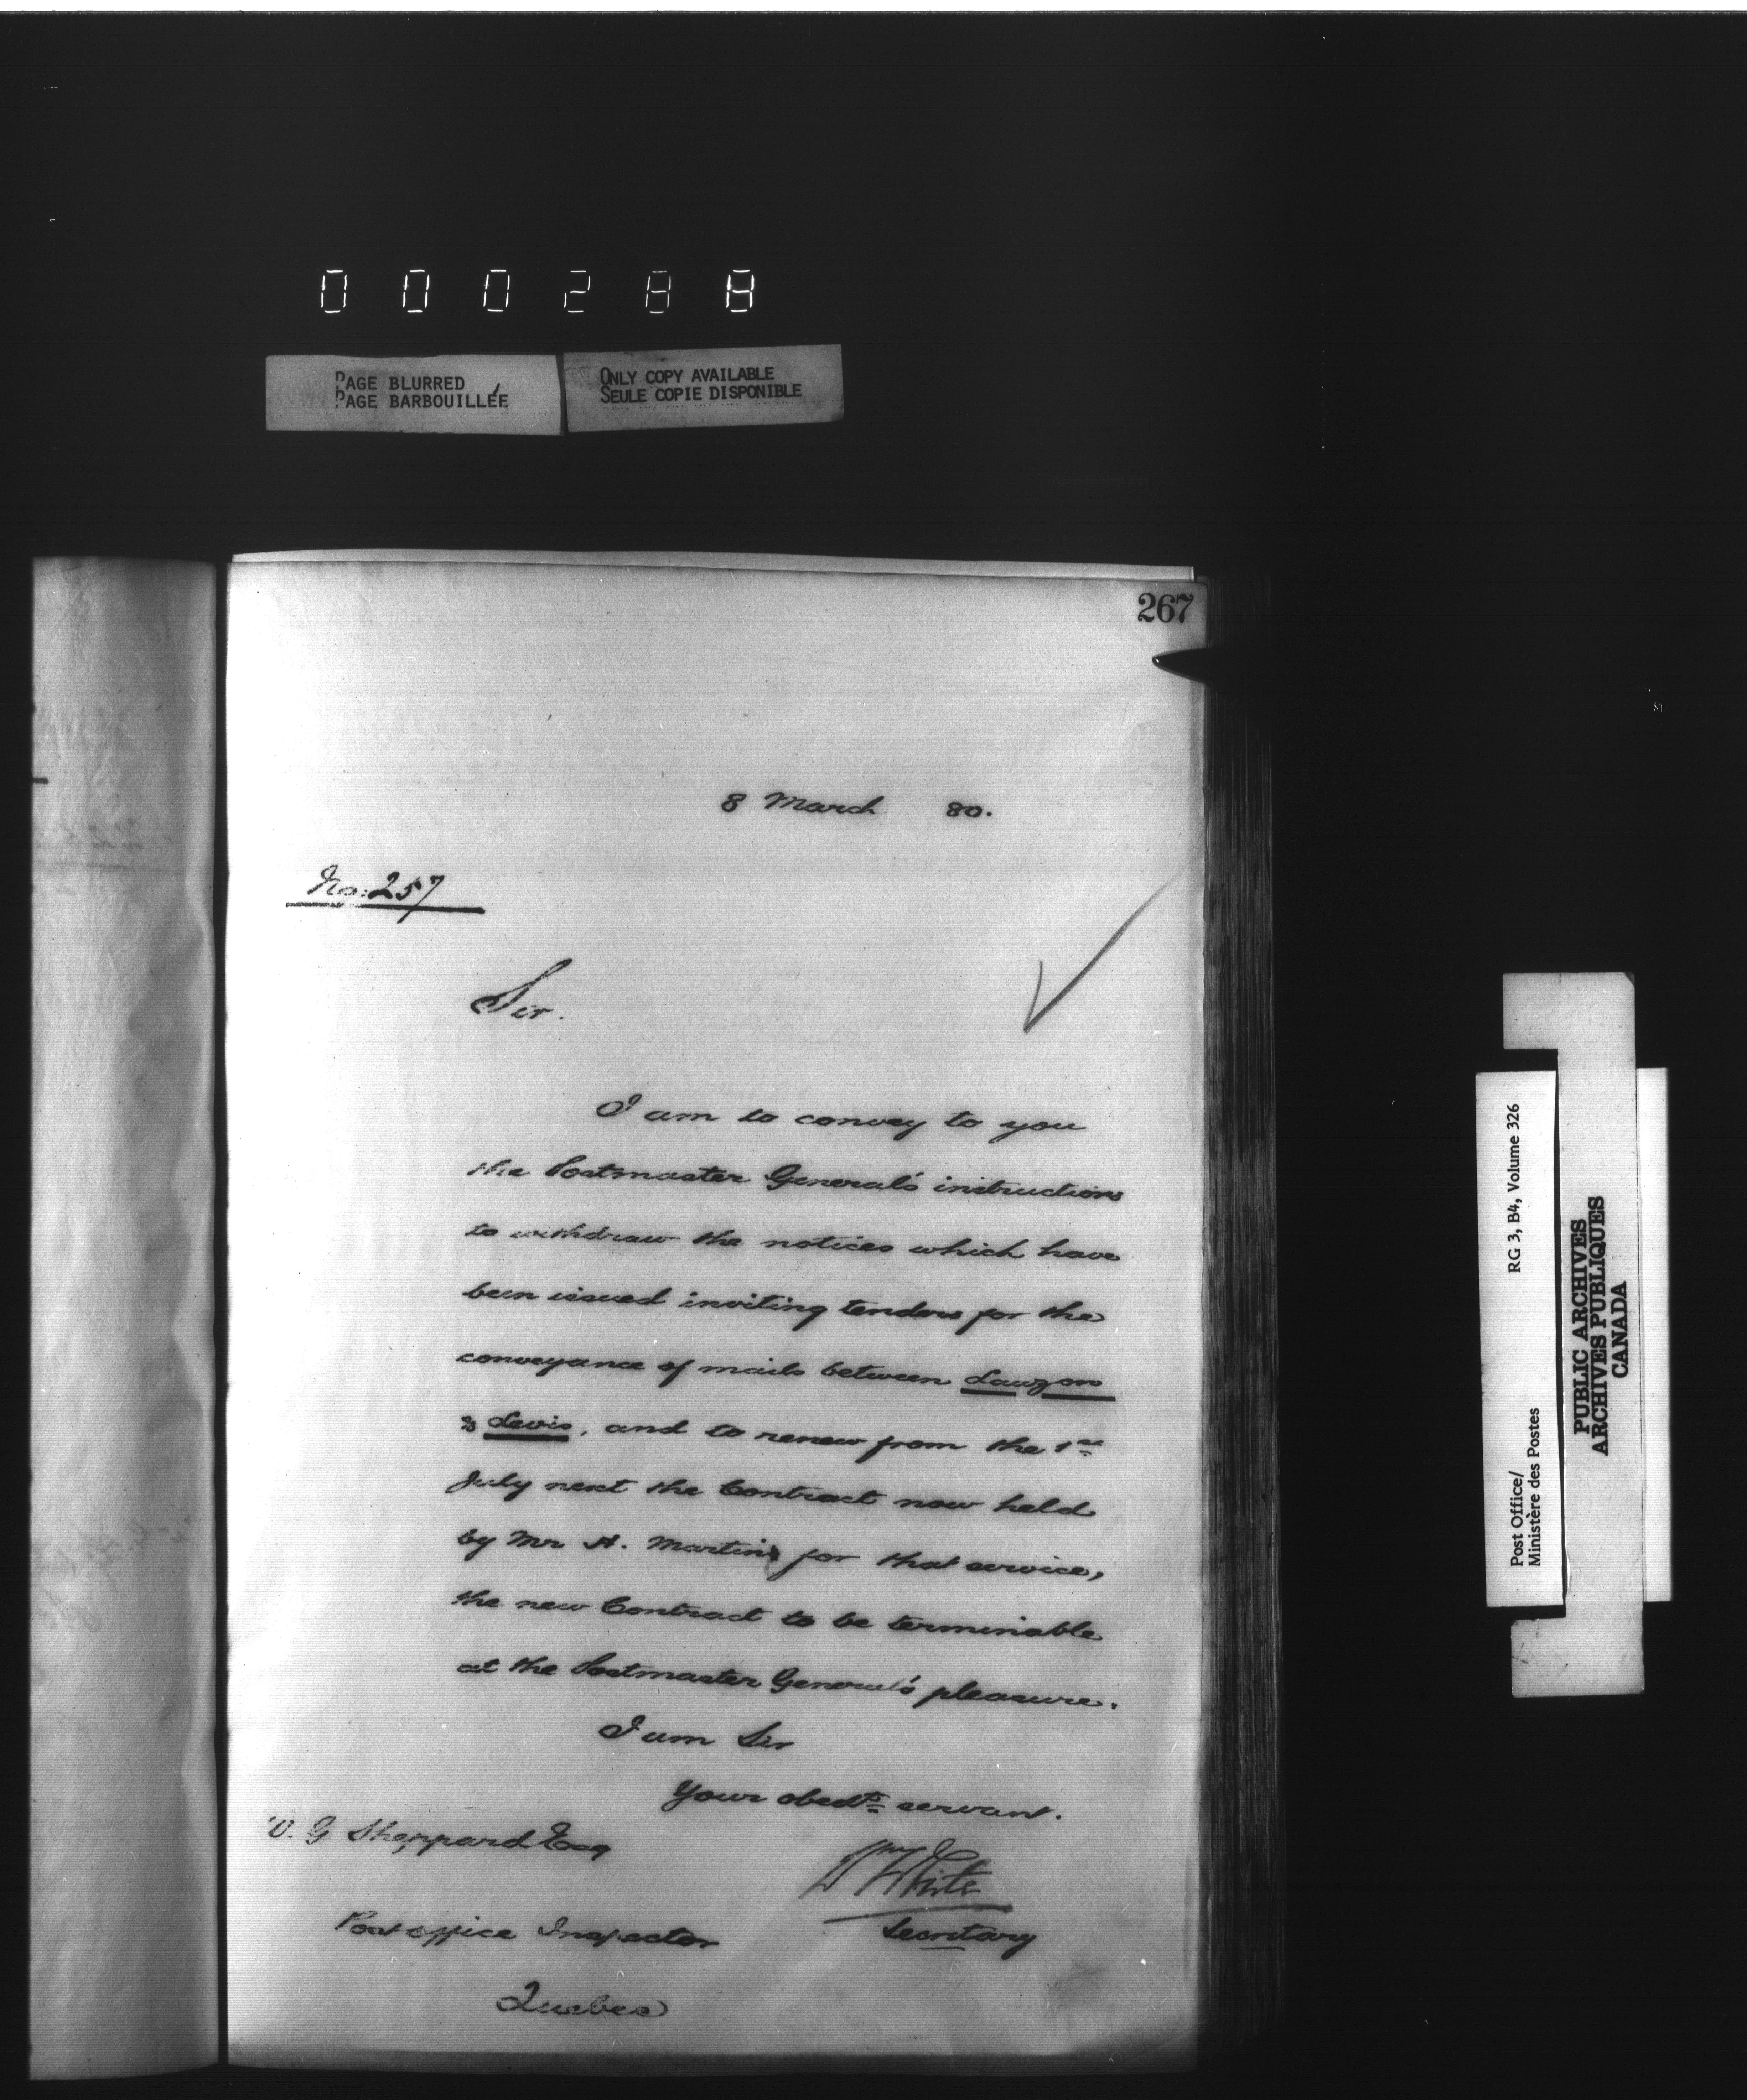 000288
PAGE BLURRED
PAGE BARBOUILLÉE
ONLY COPY AVAILABLE
SEULE COPIE DISPONIBLE
267
8 March 80.
No: 257
Sir.
I am to convey to you
the Postmaster General's instructions
to withdraw the notices which have
been issued inviting tenders for the
conveyance of mails between Lauzon
& Levis, and to renew from the 1st
July next the Contract now held
by Mr A. Martin for that service,
the new Contract to be terminable
at the Postmaster General's pleasure.
I am Sir
Your obedt. servant.
W. G Sheppard Esq
Wm White
Secretary
Post office Inspector
Quebec
Post Office/
Ministère des Postes
RG 3, B4, Volume 326
PUBLIC ARCHIVES
ARCHIVES PUBLIQUES
CANADA